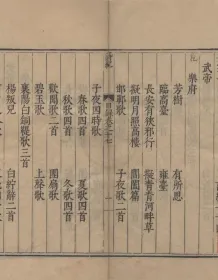 武帝
樂府
芳樹　有所思
臨高臺　雍臺
長安有狹邪行　擬青青河畔草
擬明月照高樓　閶闔篇
邯鄲歌　子夜歌二首
子夜四時歌
春歌四首　夏歌四首
秋歌四首　冬歌四首
歡聞歌二首　團扇歌
碧玉歌　上聲歌
襄陽白銅鞮歌三首
楊叛兒　白紵辭二首